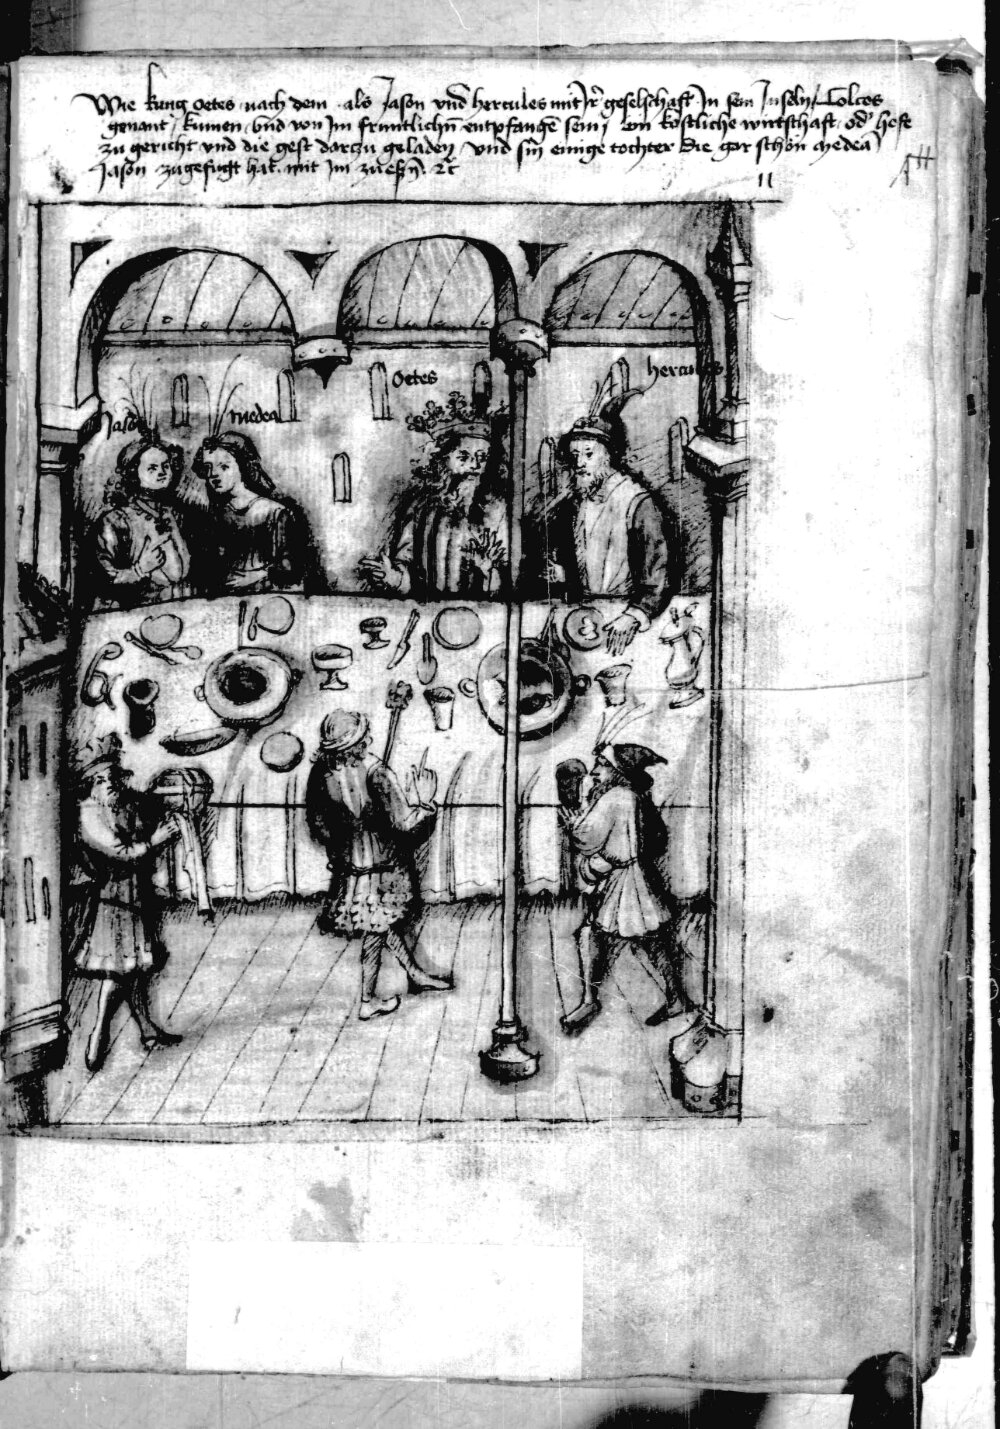 Wie kung oetes nach dem als Jason vnd hercules mit Ir geselschaft In sein Inseln Colcos
genant kumen vnd von Im fruntlichn entpfange sein ein kostliche wirtschaft od' hofe
zu gericht vnd die gest darzu geladen vnd sin einige tochter die gar schon medea
Jason zugefugt hat mit Im zu essn ꝛc
11
oetes
hercules
Jason
medea